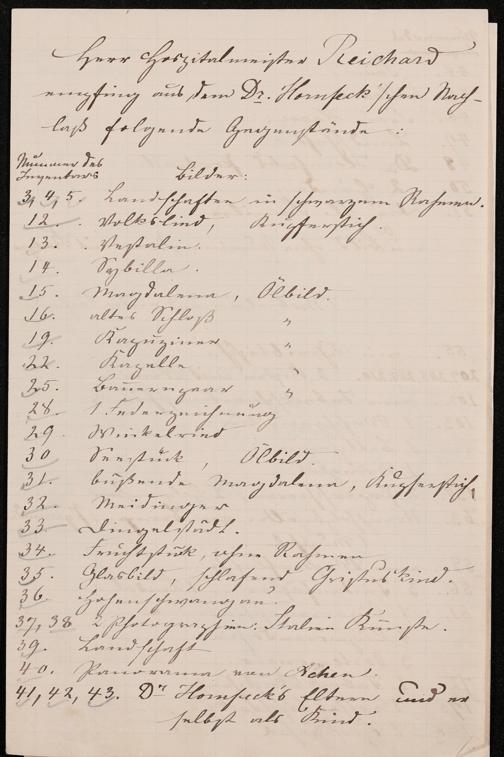 Herr Hospitalmeister Reichard
empfing aus dem Dr. Hornfeck'schen Nach-
laß folgende Gegenstände:
Nummer des
Inventars Bilder:
3, 4, 5. Landschaften in schwarzem Rahmen.
12. Volkslied, Kupferstich.
13. Vestalin.
14. Sybilla.
15. Magdalena, Ölbild.
16. altes Schloß "
19. Kapuziner "
22. Kapelle "
25. Bauernpaar "
28. 1 Federzeichnung
29. Winkelried
30 Seestück, Ölbild.
31. büßende Magdalena, Kupferstich,
32. Meidinger
33 Dingelstädt.
34. Fruchtstük, ohne Rahmen
35. Glasbild, schlafend Cristuskind.
36. Hohenschwangau.
37, 38 2 Photographien: Italien Künste.
39. Landschaft
40. Panorama von Achen.
41, 42, 43. Dr Hornfeck's Eltern und er
selbst als Kind.